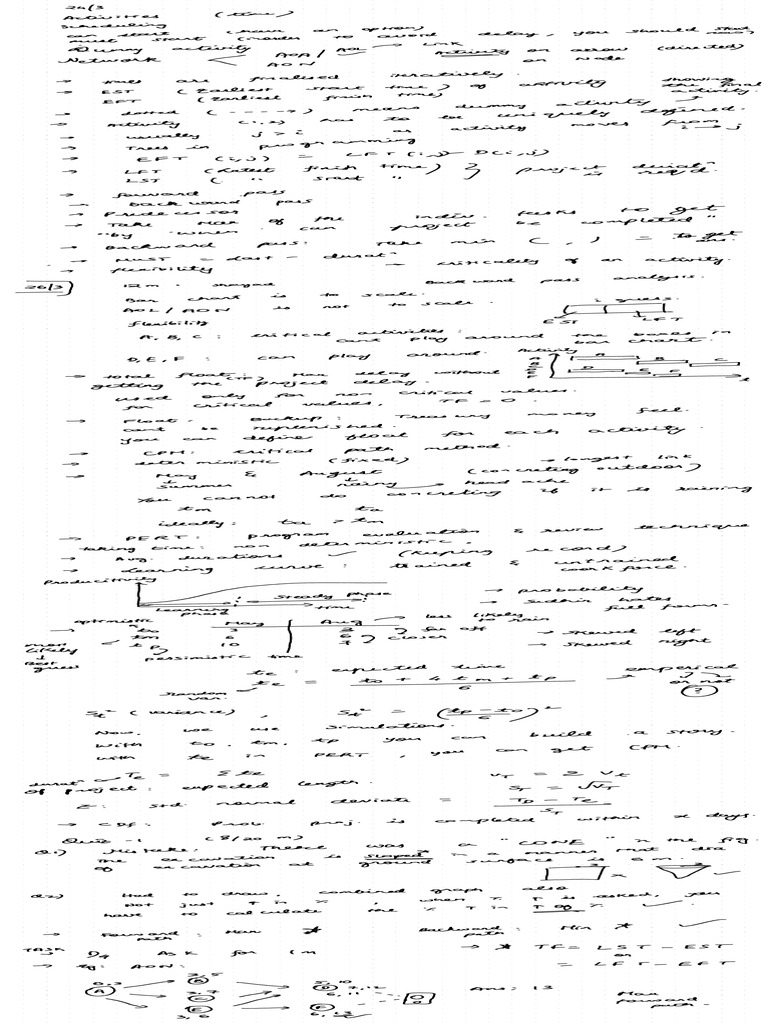 24/3
Activities (time)
Scheduling
can start (have an option)
must start (inorder to avoid delay, you should start
Dummy activity
Network AOA / AOL → Link Activity on arrow (directed)
AON on Node
→ times are finalised iteratively.
→ EST (Earliest start time) of activity showing
EFT (Earliest finish time) the final activity.
→ dotted (----→) means dummy activity
→ Activity (i,j) has to be uniquely defined.
→ usually j > i as activity moves from i → j
→ Trees in programming
→ EFT (i,j) = LFT (i,j) - D(i,j)
→ LFT (Latest finish time) } project durat^n
LST ( " start " is req'd.
→ forward pass
→ backward pass
→ Predecessor
→ Take Max of the indiv. tasks to get
"by when can project be completed"
→ Backward pass: Take min ( , ) = to get ans.
→ MUST = last - durat^n
→ flexibility → criticality of an activity.
26/3
12m. shared Backward pass analysis.
Bar chart is to scale.
AOL / AON is not to scale.
flexibility
EST LFT
A, B, C : critical activities:
cant play around the boxes in bar chart.
D, E, F : can play around.
Activity
A B C
D E F
→ total float: (TF) Max delay without
getting the project delay.
used only for non critical values.
for critical values, TF = 0.
→ Float: Backup: Treasury money feel.
cant be replenished.
you can define float for each activity.
→ CPM: critical path method.
→ deterministic (fixed) → longest link
→ May & August (concreting outdoor)
summer rainy → head ache
You cannot do concreting if it is raining
tm ta
ideally: ta > tm
→ PERT: program evaluation & review technique
taking time: non deterministic.
→ Avg. durations ✓ (keeping record)
→ Learning curve: trained & untrained work force.
Productivity
Steady phase
Learning phase time
→ probability
→ Sudhir hates full forms.
optimistic May Aug → less likely to rain
→ to 3 } far off → skewed left
most likely tm 6 6 } closer → skewed right
Best guess tp 10 7
pessimistic time
te : expected time
te = to + 4tm + tp / 6 emperical or not ?
Random var.
St² (variance), St² = (tp - to / 6)²
Now, we use simulations.
With to, tm, tp you can build a story.
with te in PERT, you can get CPM.
durat^n Te = Σ te VT = Σ Vt
of project: expected length. ST = √VT
Z: Std normal deviate = TD - TE / ST
→ CDF: Prob. proj. is completed within x days.
Quiz - 1 (8/20 m)
Q1) Mistake: There was a "CONE" in the fig.
The excavation is sloped in a manner that dia
of excavation at ground surface is 6m.
Q2) Had to draw, combined graph also
Not just T in x, when % T is asked, you
have to calculate the % T in T og %. ✓
→ Forward path: Max * Backward path: Min * ✓
TASK → D4 ASK for 1m → * TF = LST - EST
or
→ eg: AON: = LFT - EFT
Ans: 13
Max forward path.